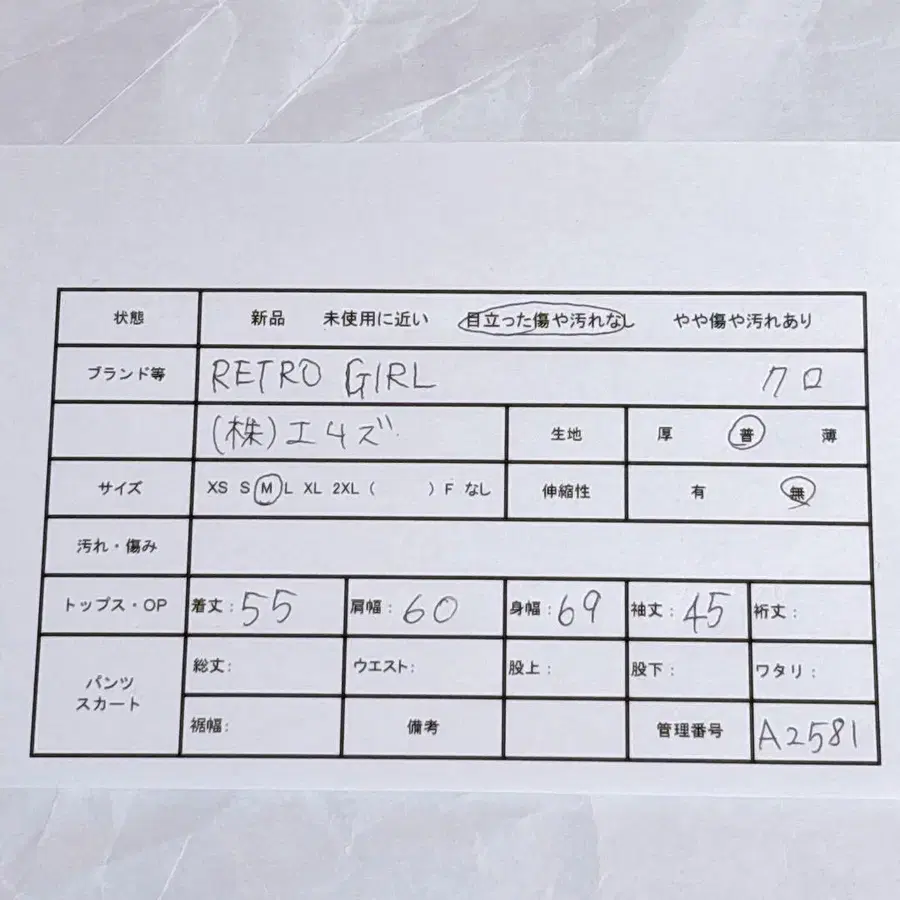 状態 新品 未使用に近い 目立った傷や汚れなし やや傷や汚れあり
ブランド等 RETRO GIRL クロ
(株)エムズ 生地 厚 普 薄
サイズ XS S M L XL 2XL ( ) F なし 伸縮性 有 無
汚れ・傷み
トップス・OP 着丈: 55 肩幅: 60 身幅: 69 袖丈: 45 裄丈:
パンツ スカート 総丈: ウエスト: 股上: 股下: ワタリ:
裾幅: 備考 管理番号 A2581